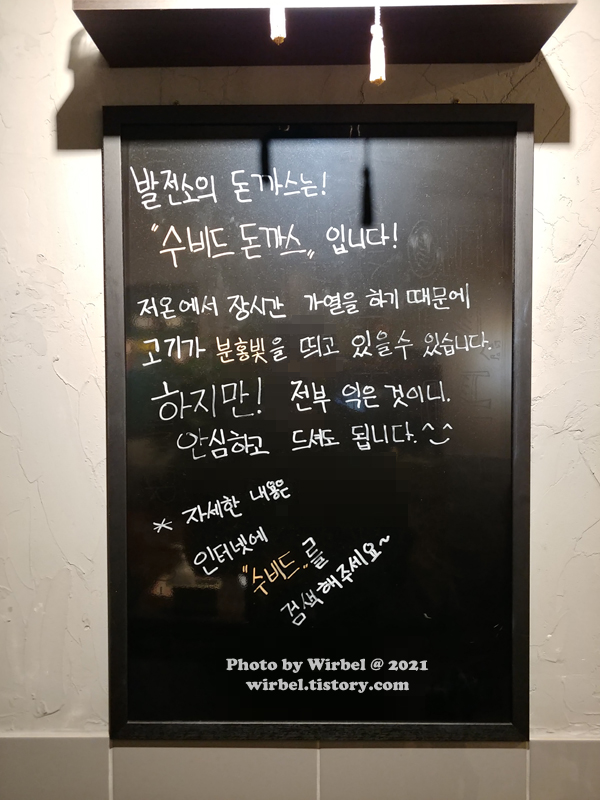 발전소의 돈까스는!
"수비드 돈까스" 입니다!
저온에서 장시간 가열을 하기 때문에
고기가 분홍빛을 띄고 있을수 있습니다.
하지만! 전부 익은 것이니.
안심하고 드셔도 됩니다.^^
* 자세한 내용은
인터넷에
"수비드"를
검색해주세요~
Photo by Wirbel @ 2021
wirbel.tistory.com